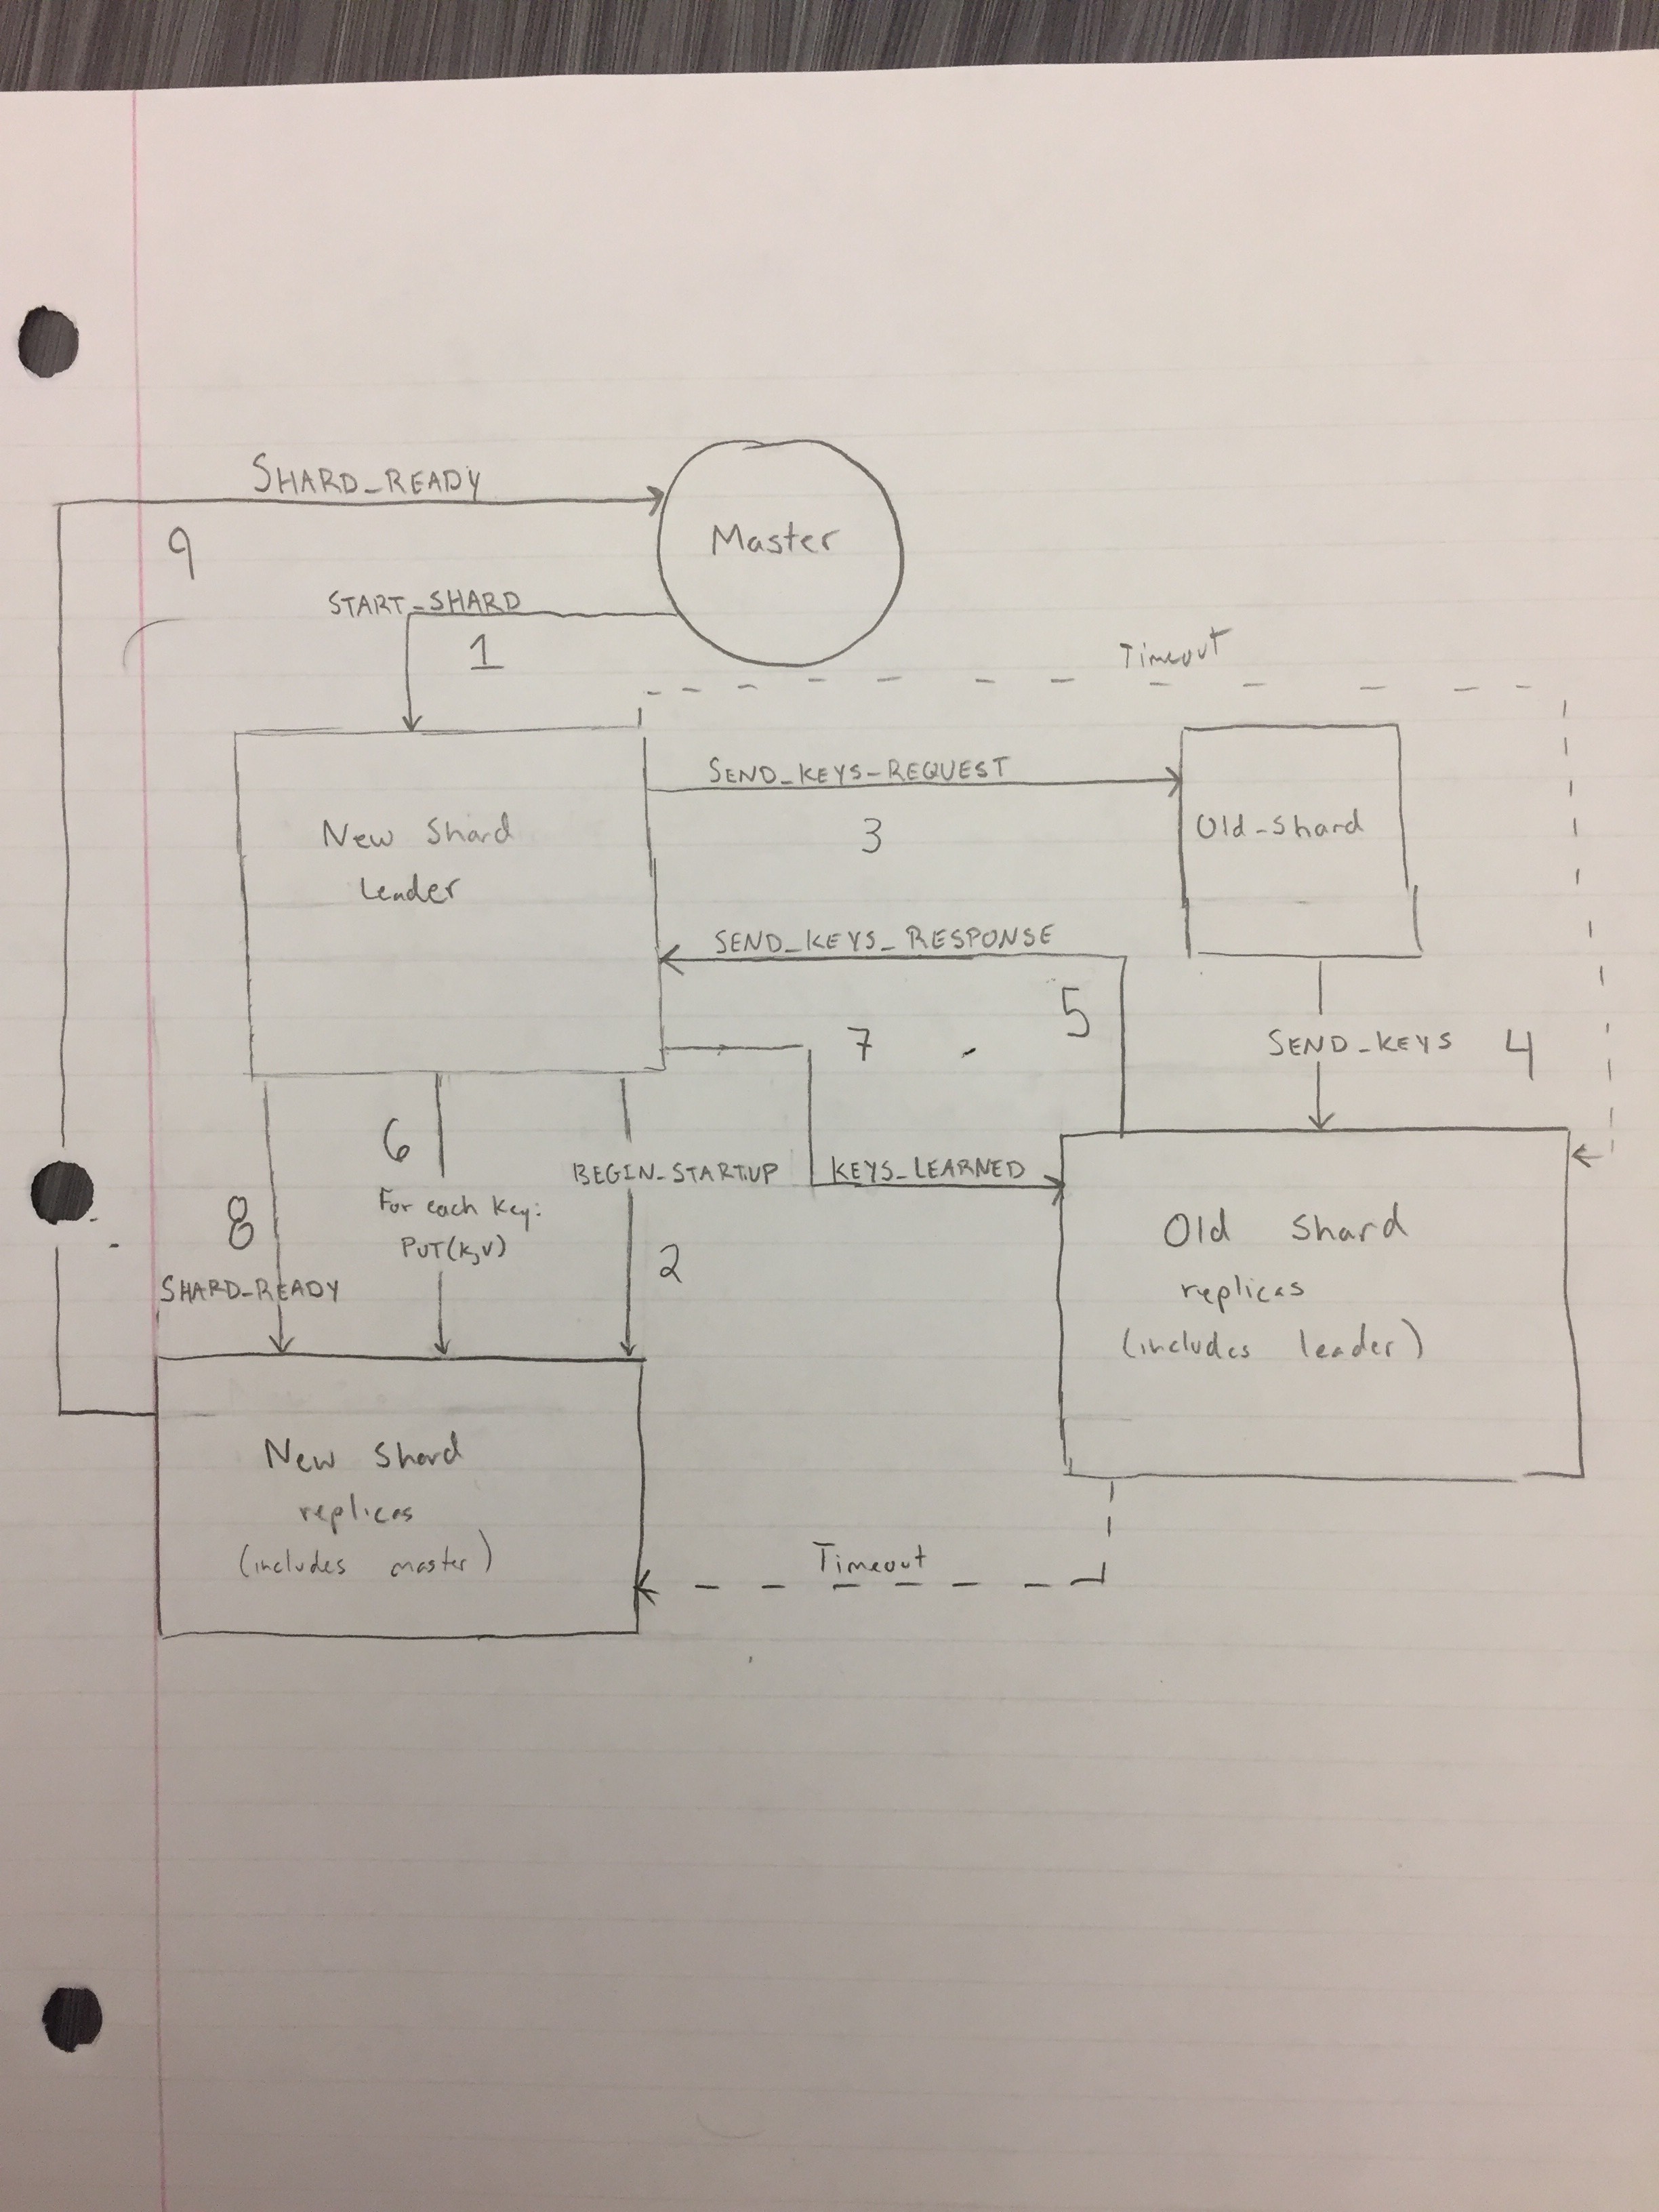 SHARD_READY
9
Master
START_SHARD
1
Timeout
SEND_KEYS_REQUEST
3
New Shard
Leader
Old-Shard
SEND_KEYS_RESPONSE
5
7
SEND_KEYS 4
6
BEGIN_STARTUP
KEYS_LEARNED
8
For each key:
PUT(k,v)
2
SHARD_READY
Old Shard
replicas
(includes leader)
New Shard
replicas
(includes master)
Timeout